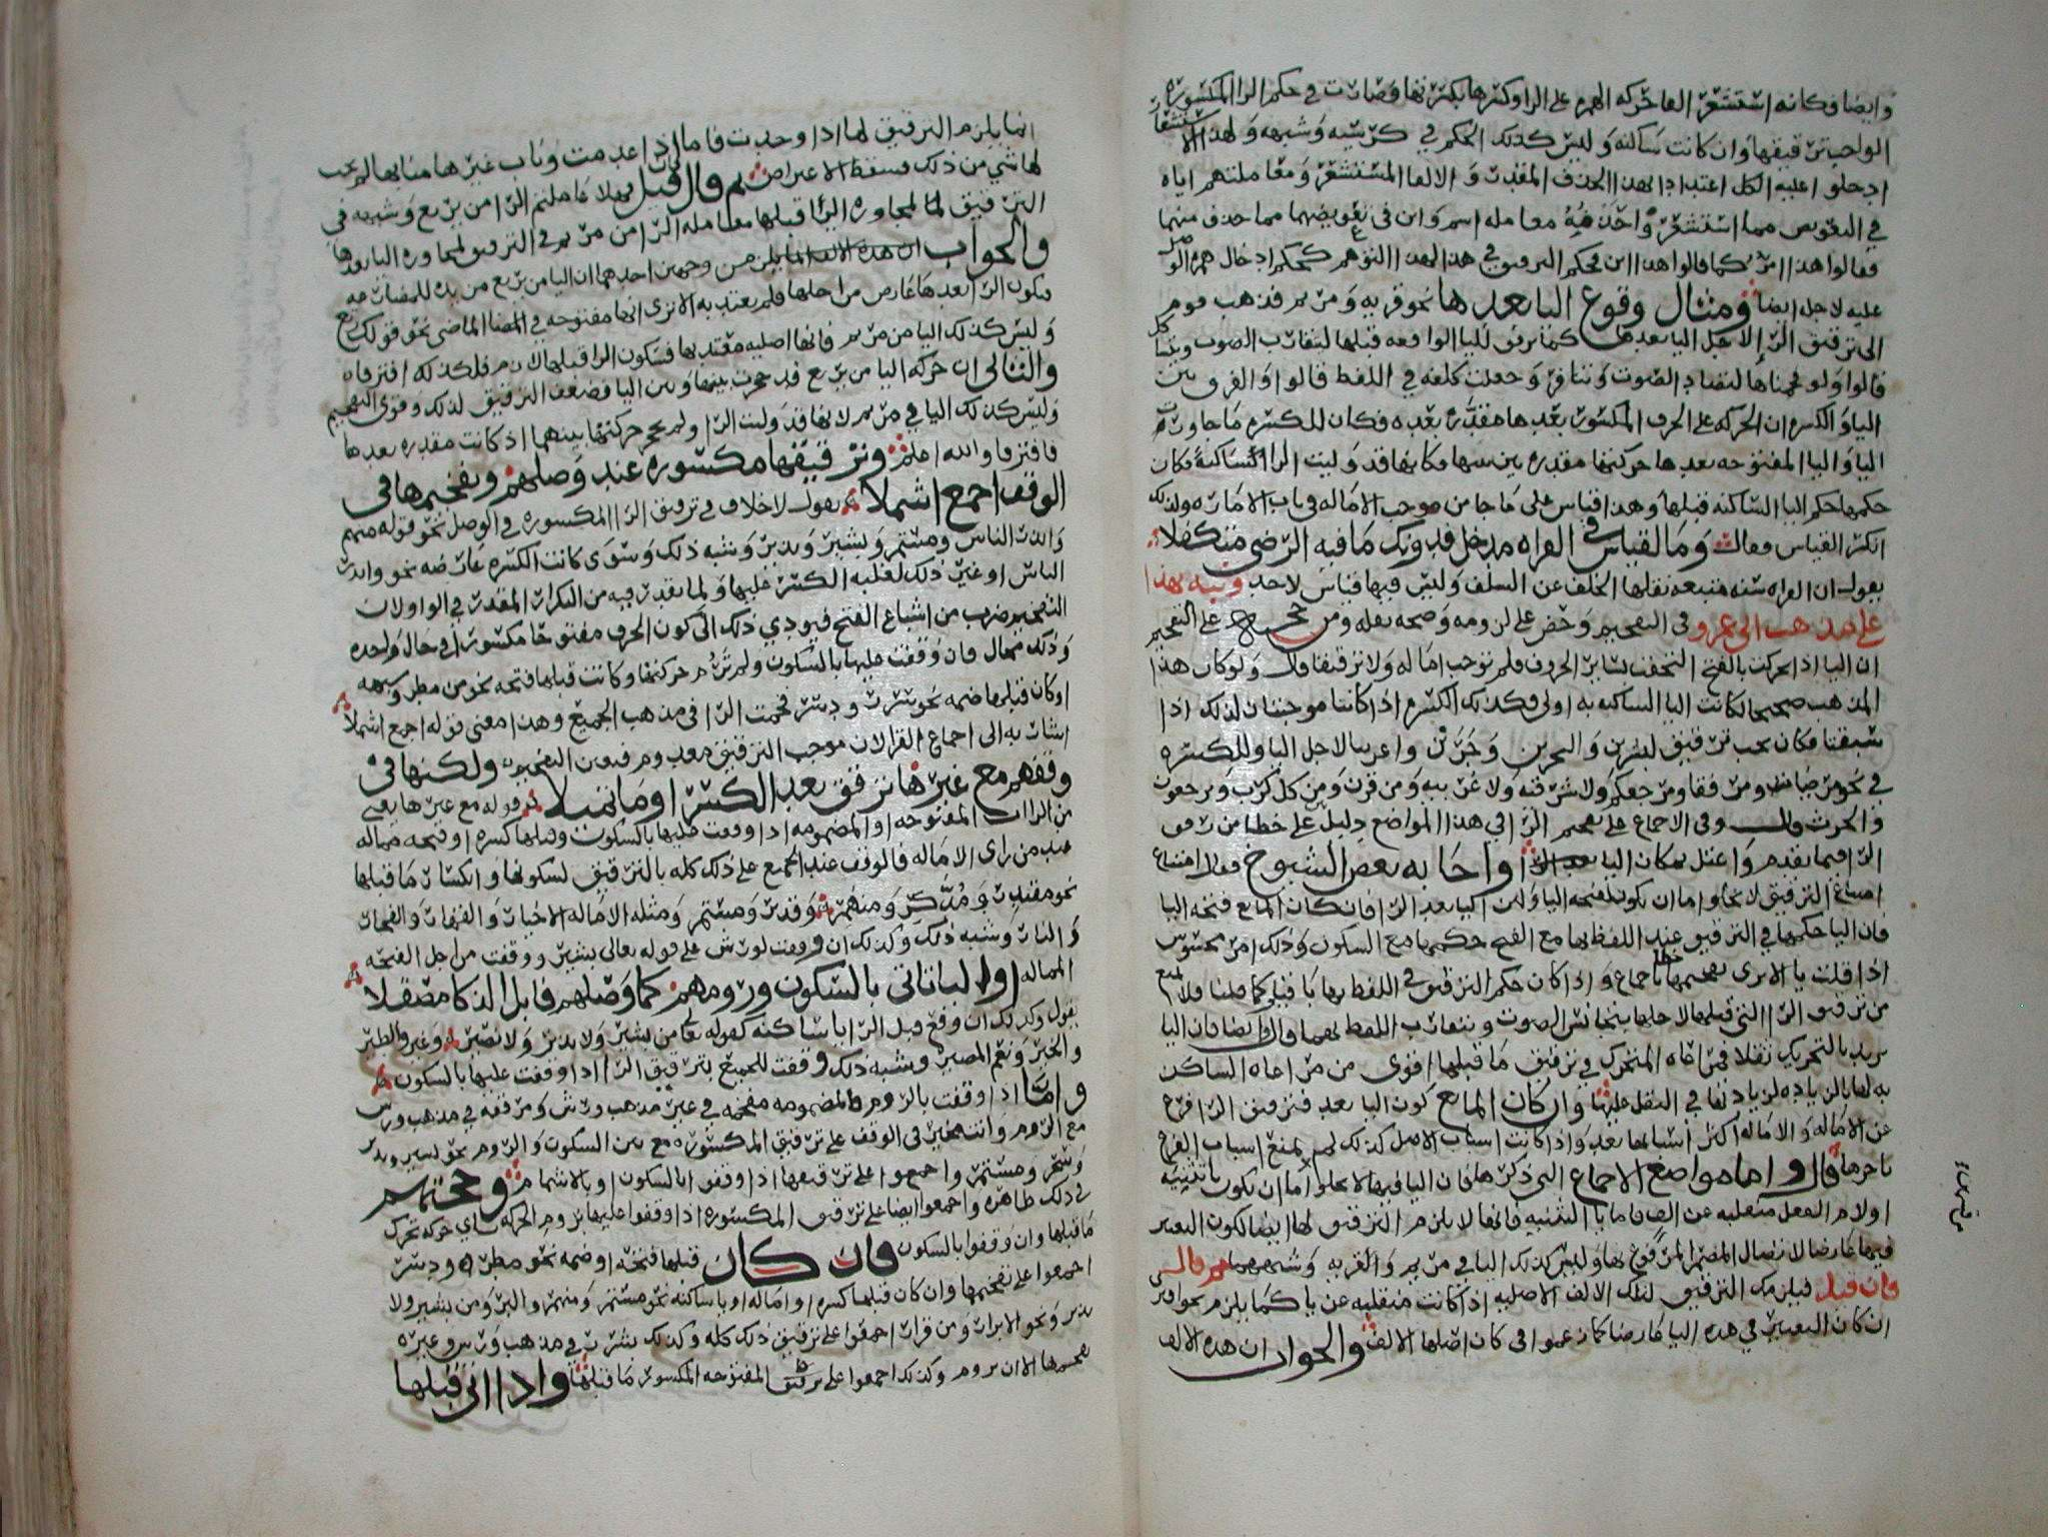 وايضا فكانه استشعر الفا حركه الهمزه على الرا وكسرها بكسرتها فصارت في حكم الرا المكسوره
الواجب ترقيقها وان كانت ساكنه وليس كذلك الحكم في كرسيه وشبهه ولهذا الاستشعار
في التعويض مما استشعر واحد فيه معامله اسم وابن في تعويضهما مما حذف منهما
عليه لاجل ايضا ومثال وقوع اليا بعدها نحو قريه ومريم فذهب قوم
الى ترقيق الرا لاجل اليا بعدها كما ترقق لليا الواقعه قبلها لتقارب الصوت
اليا والكسره ان الحركه على الحرف المكسور بعدها مقدره بعده فكان للكسره ما جاورت
اليا واليا المفتوحه بعدها حركتها مقدره بين
حكمها حكم اليا الساكنه قبلها وهذا قياس على ما جا من موجب الاماله في باب الاماره ولذلك
انكر القياس وقال وما لقياس في القراه مدخل فدونك ما فيه الرضى متكفلا
يقول ان القراه سنه متبعه نقلها الخلف عن السلف وليس فيها قياس لاحد ونبه بهذا
على مذهب ابي عمرو في التفخيم وحض على لزومه وصحه نقله ومن حجته على التفخيم
ان اليا اذا تحركت بالفتح التحقت بساير الحروف فلم توجب اماله ولا ترقيقا قال ولو كان هذا
المذهب صحيحا لكانت اليا الساكنه به اولى وكذلك الكسره اذ كانتا موجبتان لذلك اذا
سبقتا فكان يجب ترقيق لبشرين والبحرين وجرين واعرينا لاجل اليا وللكسره
في نحو مرضات ومرفقا ومرجعكم ولا شرقيه ولا غربيه ومن قرن ومن كل كرب ويرجعون
والحرث قال وفي الاجماع على تفخيم الرا في هذا المواضع دليل على خطا من رقق
الرا فيما تقدم واعتل بمكان اليا بعد الرا واجابه بعض الشيوخ فقال امتناع
امتناع الترقيق لا يخلو اما ان يكون لفتحه اليا ولان اليا بعد الرا فان كان المانع فتحه اليا
فان اليا حكمها في الترقيق عند اللفظ بها مع الفتح حكمها مع السكون وذلك امر محسوس
من ترقيق الرا التي قبلها لاجلها يتجانس الصوت ويتقارب اللفظ بهما قال وايضا فان اليا
تزيد بالتحريك ثقلا فمراعاه المتحرك في ترقيق ما قبلها اقوى من مراعاه الساكن
به لها بالزياده لزيادتها في الثقل عليها وان كان المانع كون اليا بعد فترقيق الرا فرع
عن الاماله والاماله اكثر اسبابها بعد واذا كانت اسباب الاصل كذلك لم يمتنع اسباب الفرع
تاخرها قال واما مواضع الاجماع التي ذكرها فان اليا فيها لا يخلو اما ان تكون يا تثنيه
او لام الفعل منقلبه عن الف فاما يا التثنيه فانها لا يلزم الترقيق لها ايضا لكون التغير
فيها عارضا لاتصال المضمر المرفوع بها وليس كذلك اليا في مريم والقريه وشبههما ثم قال
فان قيل فيلزمك الترقيق لتلك الالف الاصليه اذا كانت منقلبه عن يا كما يلزم نحو افترى
ان كان التغيير في هذه اليا عارضا كما زعموا في كان اصلها الالف والجواب ان هذه الالف
انما يلزم الترقيق لها اذا وجدت فاما اذا عدمت وناب غيرها منابها لم يجب
لها شي من ذلك فسقط الاعتراض ثم قال فان قيل فهلا عاملتم الرا من يريع وشبهه في
الترقيق لما لمجاوره اليا قبلها معامله الرا من مريم في الترقيق لمجاوره اليا بعدها
فيكون الرا بعدها عارض من اجلها فلم يعتد به الا ترى انها مفتوحه في الماضي نحو قولك
وليس كذلك اليا من مريم فانها اصليه معتد بها فسكون الرا قبلها لازم فلذلك افترقا
والثاني ان حركه اليا من يريع قد حجزت بينها وبين اليا فضعف الترقيق لذلك وقوى التفخيم
وليس كذلك اليا في مريم لانها قد وليت الرا ولم تحجز حركتها بينهما اذ كانت مقدره بعدها
فافترقا والله اعلم وترقيقها مكسوره عند وصلهم وتفخيمها في
الوقف اجمع اشملا يقول لا خلاف في ترقيق الرا المكسوره في الوصل نحو قوله
وانذر الناس ومستمر وبشير ونذير وشبه ذلك وسوى كانت الكسره عارضه نحو وانذر
الناس او غير ذلك لغلبه الكسر عليها ولما تقدر فيه من التكرار المقدر في الراولان
التفخيم ضرب من اشباع الفتح فيودي ذلك الى كون الحرف مفتوحا مكسورا في حال واحده
وذلك محال فان وقفت عليها بالسكون ولم ترم حركتها وكانت قبلها فتحه نحو من مطر وشبهه
او كان قبلها ضمه نحو سرر ودسر فخمت الرا في مذهب الجميع وهذا معنى قوله اجمع اشملا
اشار به الى اجماع القرا لان موجب الترقيق معدوم
وقفهم مع غيرها ترقق بعد الكسر او ما تميلا قوله مع غيرها يعني
من الراات المفتوحه او المضمومه اذا وقفت عليها بالسكون وقبلها كسره او فتحه مماله
عند من راى الاماله فالوقف عند الجميع على ذلك كله بالترقيق لسكونها وانكسار ما قبلها
نحو مقتدر ومدكر ومنهمر وقدر ومستمر ومثله الاماله الاخيار والفجار
والنار وشبه ذلك وكذلك ان وقفت لورش على قوله تعالى بشرر ووقفت من اجل الفتحه
المماله او اليا تاتي بالسكون ورومهم كما وصلهم فابل الذكا مصقلا
يقول وكذلك ان وقع قبل الرا يا ساكنه كقوله تعالى من بشير ولا نذير ولا نصير وغير والطير
والخير ونعم المصير وشبه ذلك وقفت للجميع بترقيق الرا اذا وقفت عليها بالسكون
واما اذا وقفت بالروم فالمضمومه مفخمه في غير مذهب ورش ومرققه في مذهب ورش
مع الروم وانت مخير في الوقف على ترقيق المكسوره مع بين السكون والروم نحو بشير ونذير
وسحر ومستمر واجمعوا على ترقيقها اذا وقفوا بالسكون او بالاشمام وحجتهم
في ذلك ظاهره واجمعوا ايضا على ترقيق المكسوره اذا وقفوا عليها بروم الحركه
ما قبلها وان وقفوا بالسكون فان كان قبلها فتحه او ضمه نحو مطر ودسر
اجمعوا على تفخيمها وان كان قبلها كسره او اماله او يا ساكنه نحو مستمر ومنهمر والبر ومن بشير ولا
نذير ونحو الابرار ومن قرار اجمعوا على ترقيق ذلك كله وكذلك بشرر في مذهب ورش وغيره
يفخمها الا ان يروم وكذلك اجمعوا على ترقيق المفتوحه المكسور ما قبلها واذا اتى قبلها